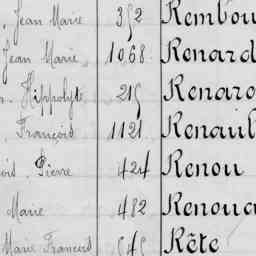 Jean Marie 352 Rembou
Jean Marie 1068 Renard
Hippolyte 215 Renard
François 1121 Renaul
Pierre 424 Renou
Marie 482 Renoua
Marie François 545 Rête